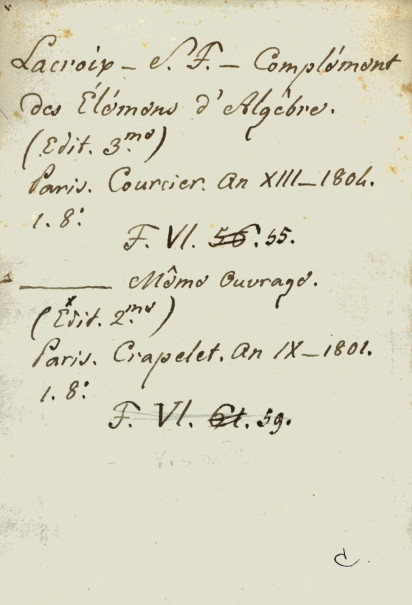 Lacroix – S. F. – Complément
des Elémens d'Algébre.
(Edit. 3.me)
Paris. Courcier. An XIII – 1804.
1. 8:
F. VI. 56. 55.
——— Même Ouvrage.
(Edit. 2.me)
Paris. Crapelet. An IX – 1801.
1. 8:
F. VI. 61. 59.
C.